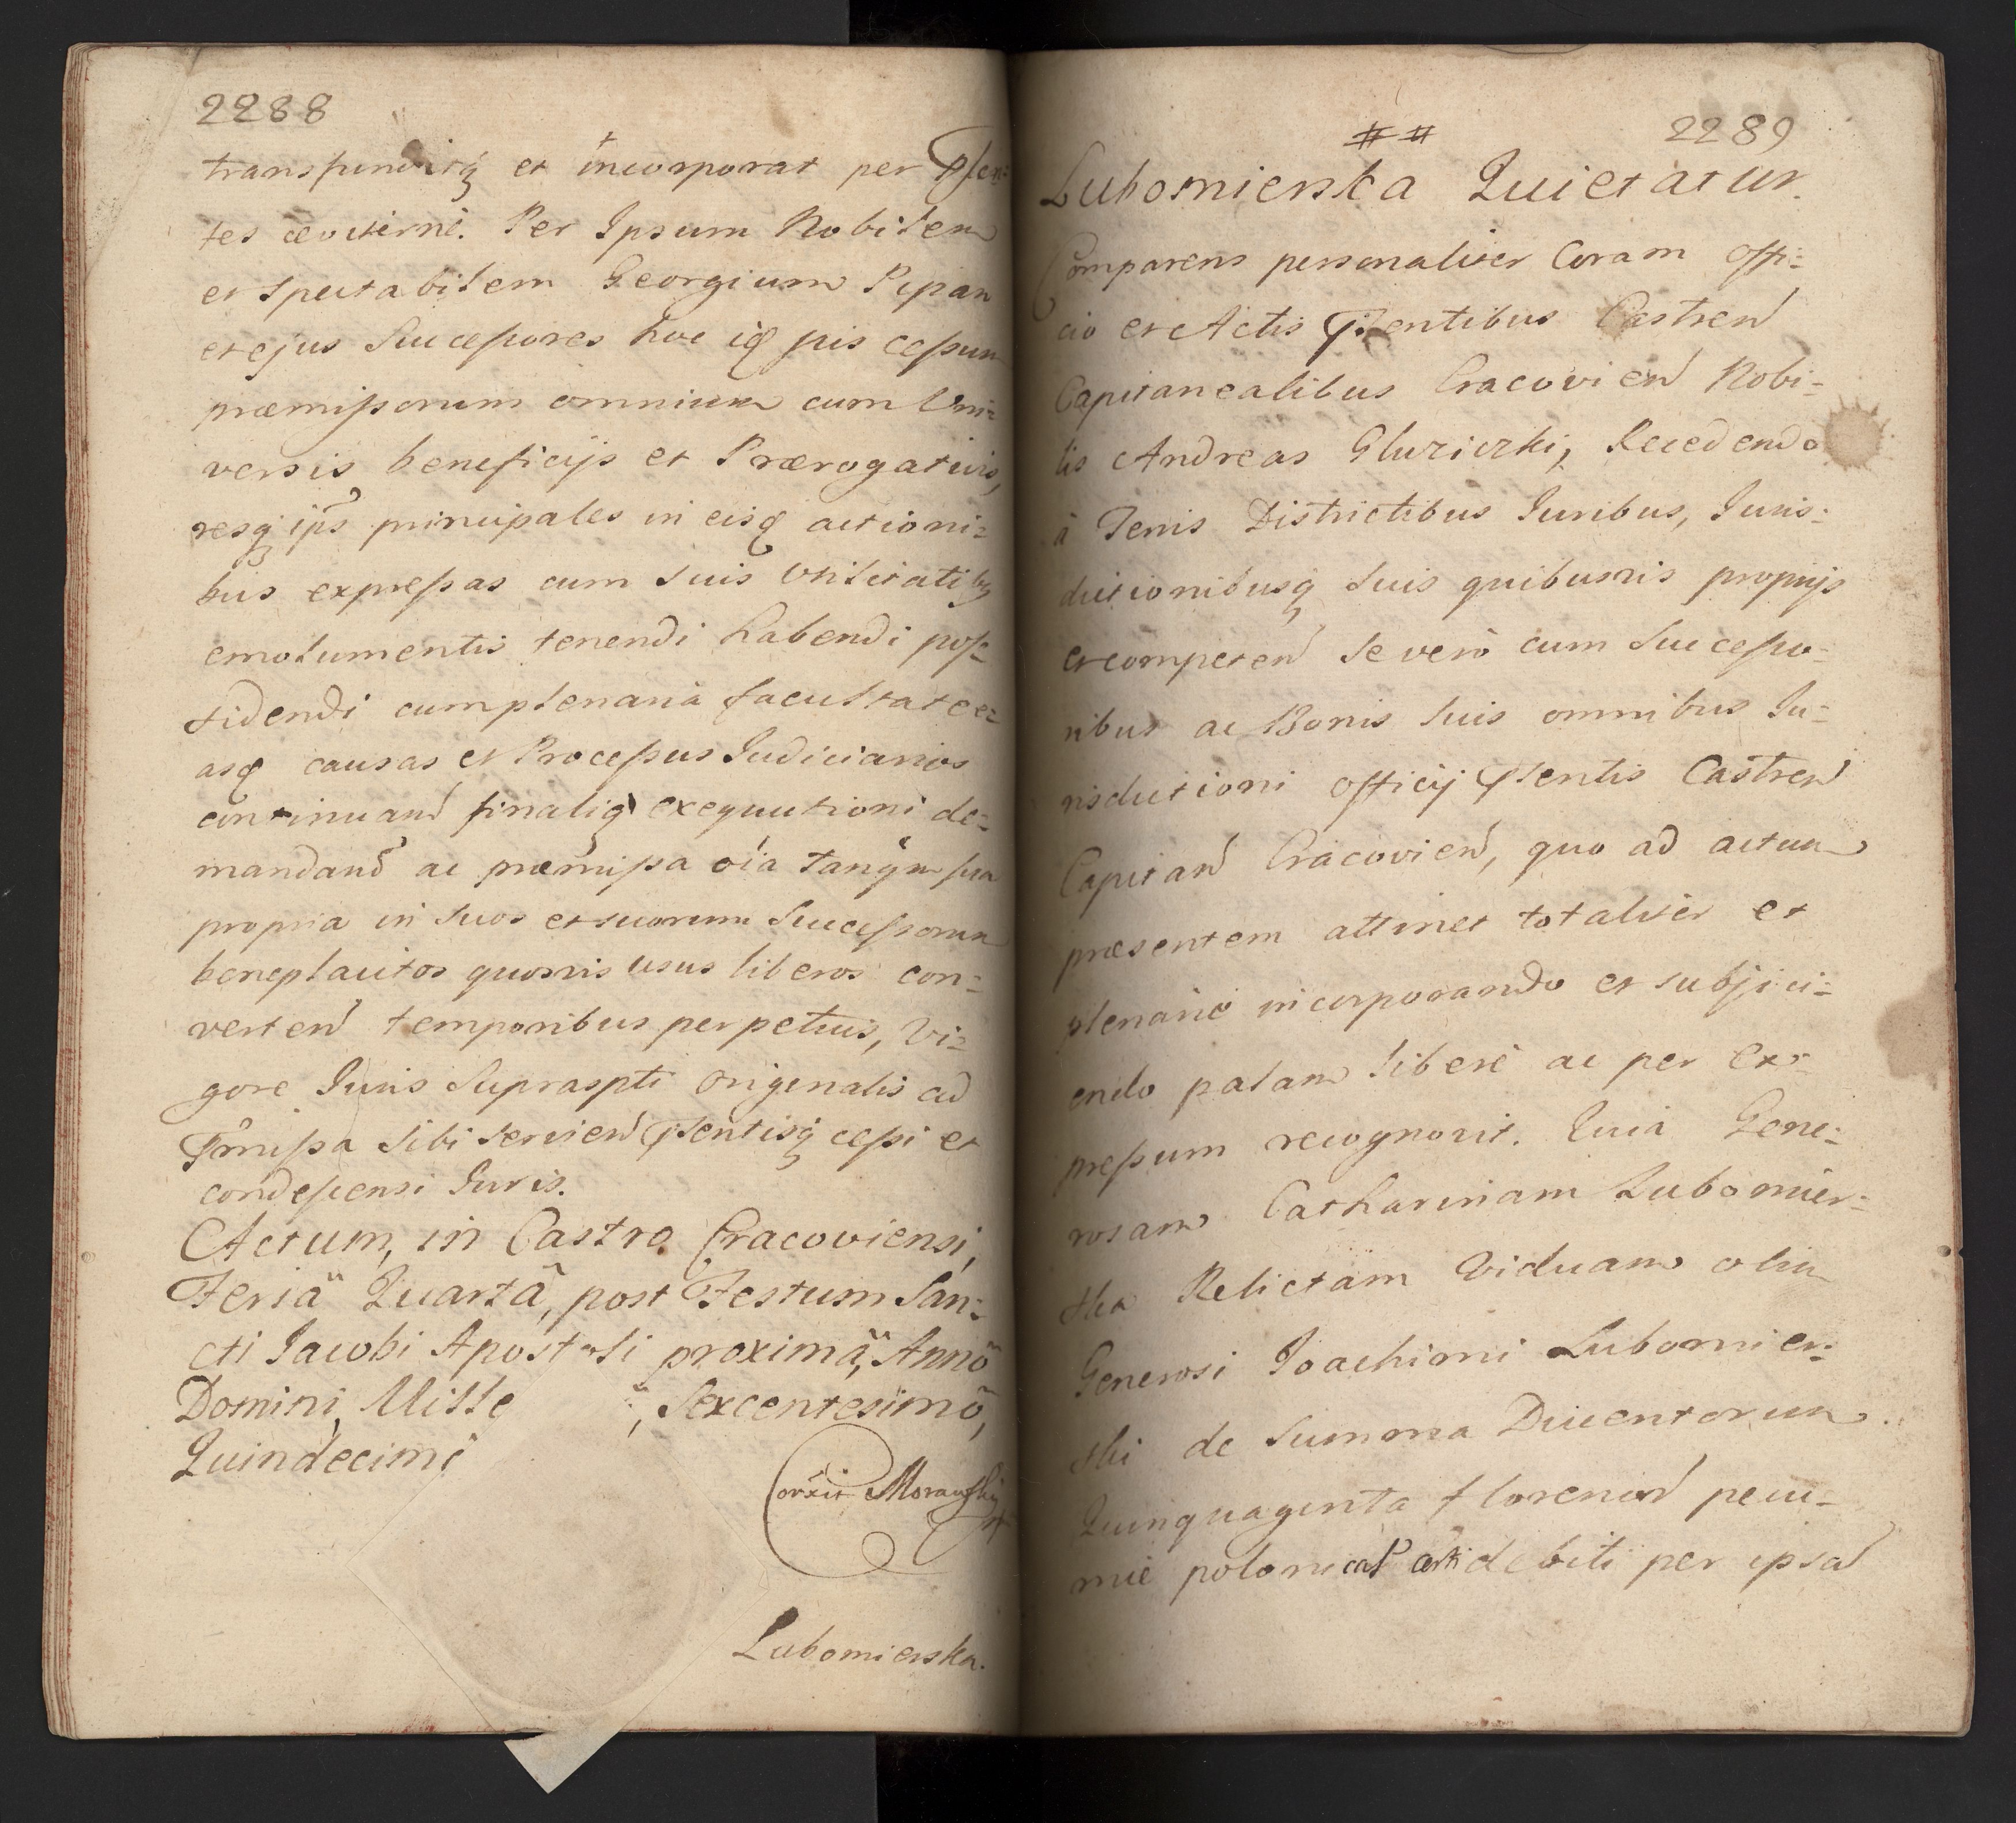 2288
transfunditq et incorporat per Pſen:
tes æviterne. Per Ipsum Nobilem
et Spectabilem Georgium Pipan
et ejus Succeſsores hoc iq pis ceſsum
præmiſsorum omnium cum Uni:
versis beneficijs et Prærogativis,
resq ips principales in eisq actioni:
bus expreſsas cum suis Utilitatibq
emolumentis tenendi habendi poſ:
sidendi cum plenaria facultate e:
asq causas et Proceſsus Iudiciarios
continuand finaliq exequutioni de:
mandand ac præmiſsa oīa tanqm sua
propria in suos et suorum Succeſsorum
beneplacitos quosvis usus liberos con:
verten temporibus perpetuis, Vi:
gore Iuris Suprascpti originalis ad
Pmiſsa sibi servien Psentisq ceſsi et
condescensi Iuris.
Actum, in Castro Cracoviensi,
Feriâ Quartâ, post Festum San:
cti Iacobi Apostoli proximâ, Annô
Domini Mille : Sexcentesimô,
Quindecimô
Corrxit Morawſky
Lubomierska.
# # 2289
Lubomierska Quietatur.
Comparens personaliter Coram Offi:
cio et Actis Psentibus Castren
Capitanealibus Cracovien Nobi:
lis Andreas Gluziczki, Recedendo
à Terris Districtibus Iuribus, Iuris:
dictionibusq suis quibusvis proprijs
et competen se verò cum Succeſso:
ribus ac Bonis suis omnibus Iu:
risdictioni officij Psentis Castren
Capitan Cracovien, quo ad actum
præsentem attinet totaliter et
plenariè incorporando et subjici:
endo palam liberè ac per ex:
preſsum recognovit. Quia Gene:
rosam Catharinam Lubomier:
ska Relictam Viduam olim
Generosi Ioachimi Lubomier:
ski de Summa Ducentorum
Quinquaginta florenor pecu:
nie polonical debiti per ipsa